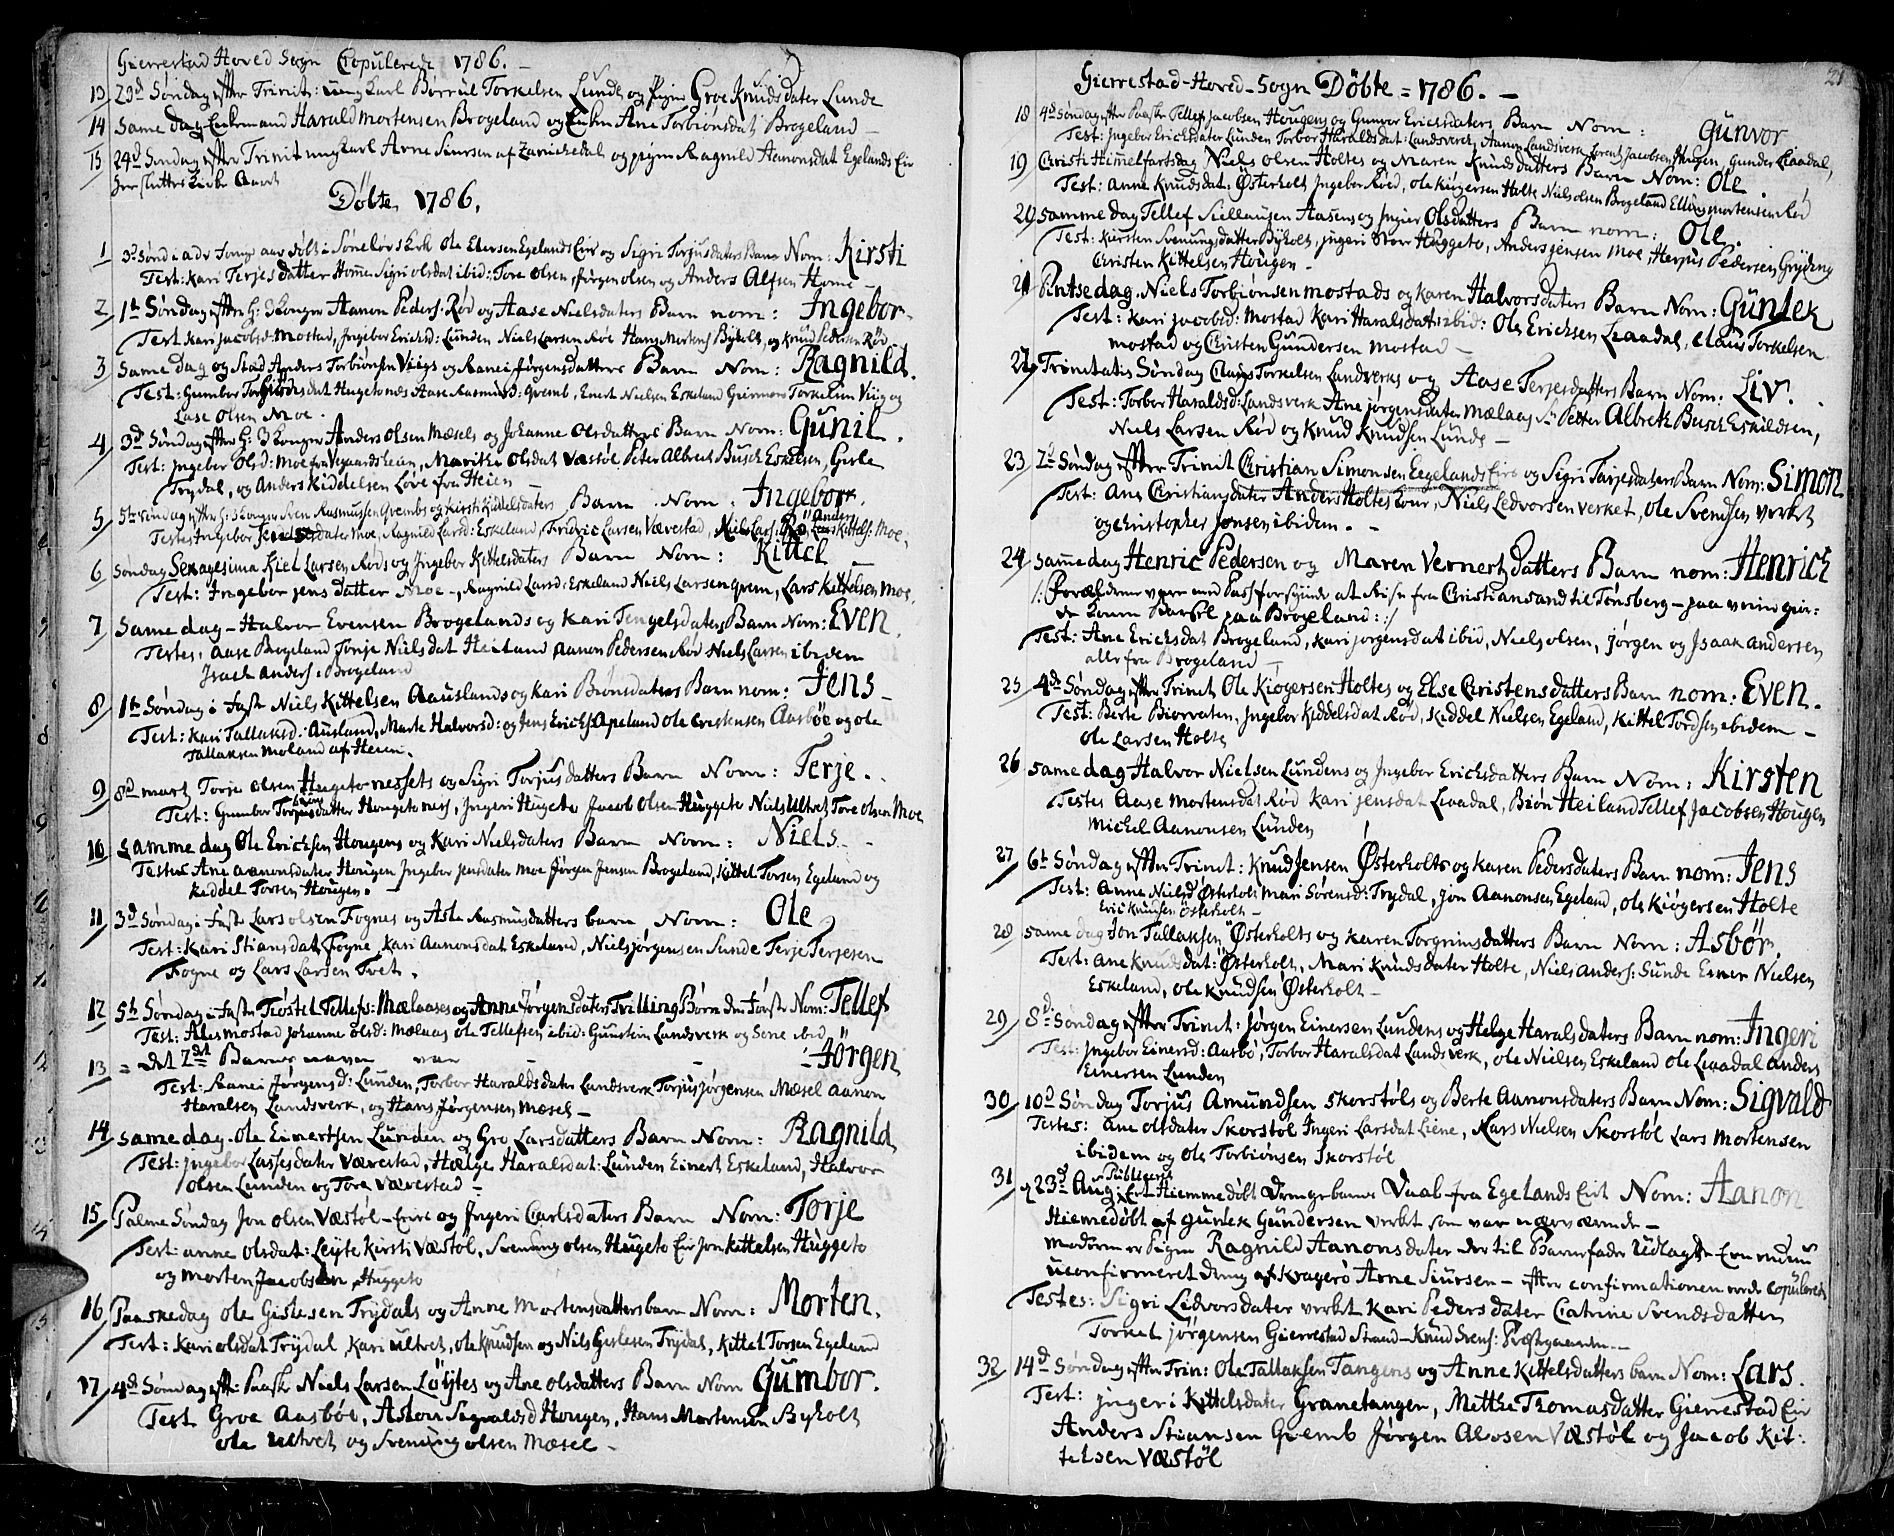 Gierrestad Hoved Sogn Copulerede 1786.
13 23d Søndag efter Trinit: ung karl Torkelsen Lunde og Pigen Groe Knuds dater Lunde
14 Same dag Enkemand Harald Mortensen Brogeland og Enken Ane Torbiønsdat Brogeland
15 24d Søndag efter Trinit ungkarl Arne Siursen af og pigen Ragnild Aanonsdat Egelands Eir
her slutter Aaret
Døbte 1786.
1 Ole Egelands Eir og Sigri Torjusdaters Barn Nom: Kirsti
Test: Kari Terjesdatter Homme Sigri olsdat ibid: Tore olsen, Jørgen olsen og Anders Alfsen Home
2 1te Søndag efter H: 3 Konger Aanon Peders: Rød og Aase Nielsdaters Barn nom: Ingebor
Test Kari Jacobsd: Mostad, Ingebor Ericsd: Lunden Niels Larsen Røe Hans Mortens Byholt, og Knud Pedersen Rød
3 Same dag og Stæd Anders Torbiønsen Viigs og Ranei Jørgensdatters Barn Nom: Ragnild.
Test: Gumbor dat Hugetonæs Aase Rasmusd: Gremb, Enert Nielsen Eskeland Giermon Torkelsen Viig og
Lase olsen Moe.
4 3d Søndag efter H: 3 Konger Anders olsen Mæsels og Johanne olsdatters Barn Nom: Gunil.
Test: Ingebor olsd: Moe fra Vegaardsheien, Marithe olsdat Væstøl Peter Albrect Busch Eskelsen, Gisle
Trydal, og Anders Kiddelsen Løve fra Heien
5 5te Søndag efter H: 3 Konger Rasmussen Grembs og Kirsti Kittelsdaters Barn Nom: Ingebor.
Testes Ingebor Jensdater Moe, Ragnild Larsd: Eskeland, Fridric Larsen Værestad, Niels Lars: Rø Anders Kittels: Moe.
6 Søndag Sexagesima Kiel Larsen Røds og Ingebor Kittelsdaters Barn Nom: Kittel
Test: Ingebor Jens datter Moe, Ragnild Larsd: Eskeland Niels Larsen grem, Lars Kittelsen Moe
7 Same dag Halvor Evensen Brogelands og Kari Tengelsdaters Barn Nom: Even.
Testes, Aase Brogeland Tonje Nielsdat Heiland Aanon Pedersen Rød Niels Larsen ibidem
Isach Anders: Brogeland
8 1te Søndag i Faste Niels Kittelsen Aauslands og Kari Biønsdaters Barn nom: Jens
Test: Kari Tallaksd: Ausland, Marte Halvorsd: og Jens Ericks: Apeland Ole Aasbøe og ole
Tallaksen Moland af Heien.
9 8d Mart Torje olsen Hugetonessets og Sigri Torjus datters Barn Nom: Terje.
Test: Gumbor datter Hougetonæs, Ingeri Hugeto Jacob Olsen Huggeto Niels Ultvet Tore Olsen Moe
10 samme dag Ole Erichsen Hougens og Kari Nielsdaters Barn Nom: Niels
Testes Ane Aanonsdater Hougen Ingebor Jensdater Moe Jørgen Jensen Brogeland, Kittel Torsen Egeland og
Kiddel Torsen Hougen.
11 3d Søndag i Faste Lars olsen Fognes og Asle Rasmusdatters barn Nom: Ole
Test: Kari Stiansdat Fogne, Kari Aanonsdat Eskeland, Niels Jørgensen Sunde Terje Terjesen
Fogne og Lars Larsen Tvet.
12 5te Søndag i Faste Tiøstel Tellefs: Mælaases og Anne Jørgensdaters Trilling Børn den første Nom: Tellef
Test: Ales Mostad Johanne olsd: Mælaas Ole Tellefsen ibid: Gunstein Landsverk og Sone ibid
13 = det 2det Barns navn var Jørgen
Test: Ranei Jørgensd: Lunden, Torbor Haraldsdater Landsverk Torjus Jørgensen Mæsel Aanon
Haralsen Landsverk, og Hans Jørgensen Mæsel
14 same dag Ole Einertsen Lunden og Gro Larsdatters Barn Nom: Ragnild
Test: Ingebor Lassesdater Værestad, Hælge Haralsdat: Lunden Einert Eskeland, Halvor
Olsen Lunden og Tore Værestad
15 Palme Søndag Jon olsen Væstøl og Ingeri Carlsdaters Barn Nom: Torje
Test: anne olsdat: Leite Kirsti Væstøl, Svenung olsen Hugeto Eir Jon Kittelsen Huggeto
og Morten Jacobsen Huggeto
16 Paaskedag Ole Gislesen Trydals og Anne Mortensdatters barn Nom: Morten.
Test: Kari olsdat Trydal, Kari ultvet, ole Knudsen og Niels Gislesen Trydal, Kittel Torsen Egeland
17 4de Søndag efter Paask Niels Larsen Løytes og Ane olsdatters Barn Nom Gumbor.
Test Groe Aasbøe, Aslou Sigvaldsd Hougen, Hans Mortensen Byholt
ole Ultvet og Svenung olsen Mæsel
Gierrestad-Hoved-Sogn Døbte = 1786.
21
18 4de Søndag efter Paaske Tellef Jacobsen Hougens og Gunvor Ericksdaters Barn Nom: Gunvor
Test: Ingebor Ericksdater Lunden Torbor Haraldsdat: Landsverk, Aanon Landsverk Jacobsen Hougen, Gunder Laadal,
19 Christi Himmelfartsdag Niels Olsen Holtes og Maren Knudsdatters Barn Nom: Ole.
Test: Anne Knudsdat: Østerholt Ingebor Rød, Ole Kiøgersen Holte Niels Olsen Brogeland Elling Mortensen Rød
20 samme dag Tellef Siellausen Aasens og Ingier Olsdatters Barn nom: Ole.
Test: Kiersten Svenungsdatter Byholt, Ingeri Huggeto, Anders Jensen Moe, Herjus Pedersen Gryding
Christen Kittelsen Hougen
21 Pintsedag Niels Torbiønsen Mostads og Karen Halvorsdaters Barn Nom: Guntek
Test: Kari Jacobsd: Mostad Kari Haralsdat ibid: Ole Erichsen Laadal, Claus Torkelsen
Mostad og Christen Gundersen Mostad
22 Trinitatis Søndag Claus Torkelsen Landverks og Aase Terjesdatters Barn Nom: Liv.
Test: Torbor Haraldsd: Landsverk Ane Jørgensdater Mælaas Sr: Petter Albrek Busch Eskildsen,
Niels Larsen Rød og Knud Knudsen Lunde
23 2d Søndag efter Trinit Christian Simonsen Egelands Eir og Sigri Tarjesdaters Barn Nom: Simon
Test: Ane Christiansdater Anders Holtes Kone, Niels Ledvorsen verket, Ole Svendsen verket
og Christopher Jonsen ibidem.
24 same dag Henric Pedersen og Maren Vernertz datters Barn nom: Henrich
/: Forældrene vare med Pass forsynede at Reise fra Christiansand til Tønsberg paa
Barsel paa Brogeland :/
Test: Ane Ericksdat Brogeland, Kari Jørgensdat ibid, Niels olsen, Jørgen og Isaak Andersen
alle fra Brogeland
25 4de Søndag efter Trinit Ole Kiøgersen Holtes og Else Christensdatters Barn nom: Even.
Test: Berte Biorvaten, Ingebor Kiddelsdat Rød, Kiddel Nielsen Egeland, Kittel Tordsen ibidem
Ole Larsen Holte
26 same dag Halvor Nielsen Lundens og Ingebor Ericksdatters Barn Nom: Kirsten
Testes Aase Mortensdat Rød Kari Jensdat Laadal, Biøn Heiland Tellef Jacobsen Hougen
Michel Aanonsen Lunden
27 6te Søndag efter Trinit: Knud Jensen Østerholts og Karen Pedersdaters Barn nom: Jens
Test: Anne Nielsd Østerholt Mari Sørensd: Trydal, Jon Aanonsen Egeland, Ole Kiøgersen Holte
Eric Knudsen Østerholt
28 same dag Jon Tallaksen Østerholts og Karen Torgrimsdatters Barn Nom: Asbør.
Test: Ane Knudsdat: Østerholt, Mari Knudsdater Holte, Niels Anders: Sunde Nielsen
Eskeland, Ole Knudsen Østerholt
29 8de Søndag efter Trinit: Jørgen Einersen Lundens og Helge Haralsdaters Barn nom: Ingeri
Test: Ingebor Einersd: Aasbø, Torbor Haralsdat Landsverk, Ole Nielsen Eskeland Ole Laadal Anders
Einersen Lunden
30 10de Søndag Torjus Amundsen Skorstøls og Berte Aanonsdaters Barn Nom: Sigvald
Testes: Ane olsdater Skorstøl Ingeri Larsdat Liene, Lars Nielsen Skorstøl Lars Mortensen
ibidem og Ole Torbiønsen Skorstøl
31 d 23d Aug: Publiceret Et Hiemmedøbt Drengebarn fra Egelands Eir Nom: Aanon
Hiemedøbt af Guntek Gundersen verket som var nærværende
Moderen er Pigen Ragnild Aanons dater der til Barnefader Udlagde Een endnu
uconfirmeret dreng af Kragerø Arne Siursen efter confirmationen copulerede
Testes: Sigri Ledvorsdater verket Kari Peders dater Catrine Svendsdatter
Torkel Jørgensen Gierrestad Strand Knud Svens: Præstgaarden
32 14d Søndag efter Trin: Ole Tallaksen Tangens og Anne Kittelsdatters barn Nom: Lars.
Test: Ingeri Kittelsdater Granetangen, Metthe Thomasdatter Gierrestad Eir
Anders Stiansen Giemb Jørgen Væstøl og Jacob Kit:
telsen Væstøl